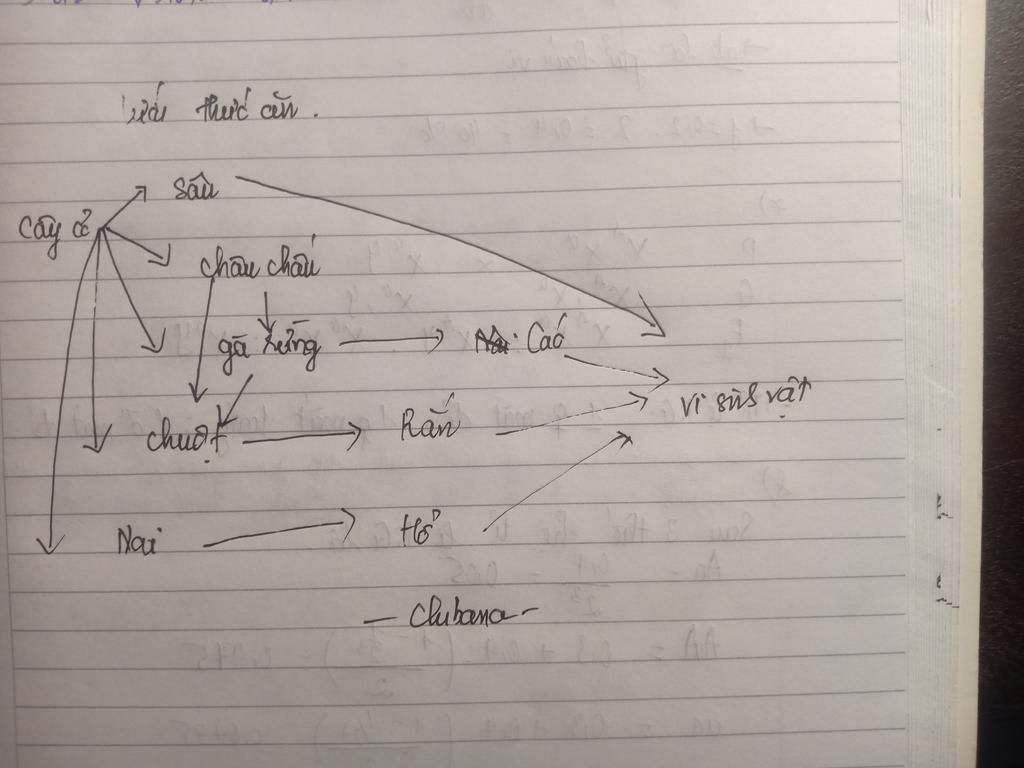 thức ăn.
sâu
Cây cỏ
châu chấu
gà rừng Cáo
vi sinh vật
chuột Rắn
Nai Hổ
- Chibana -